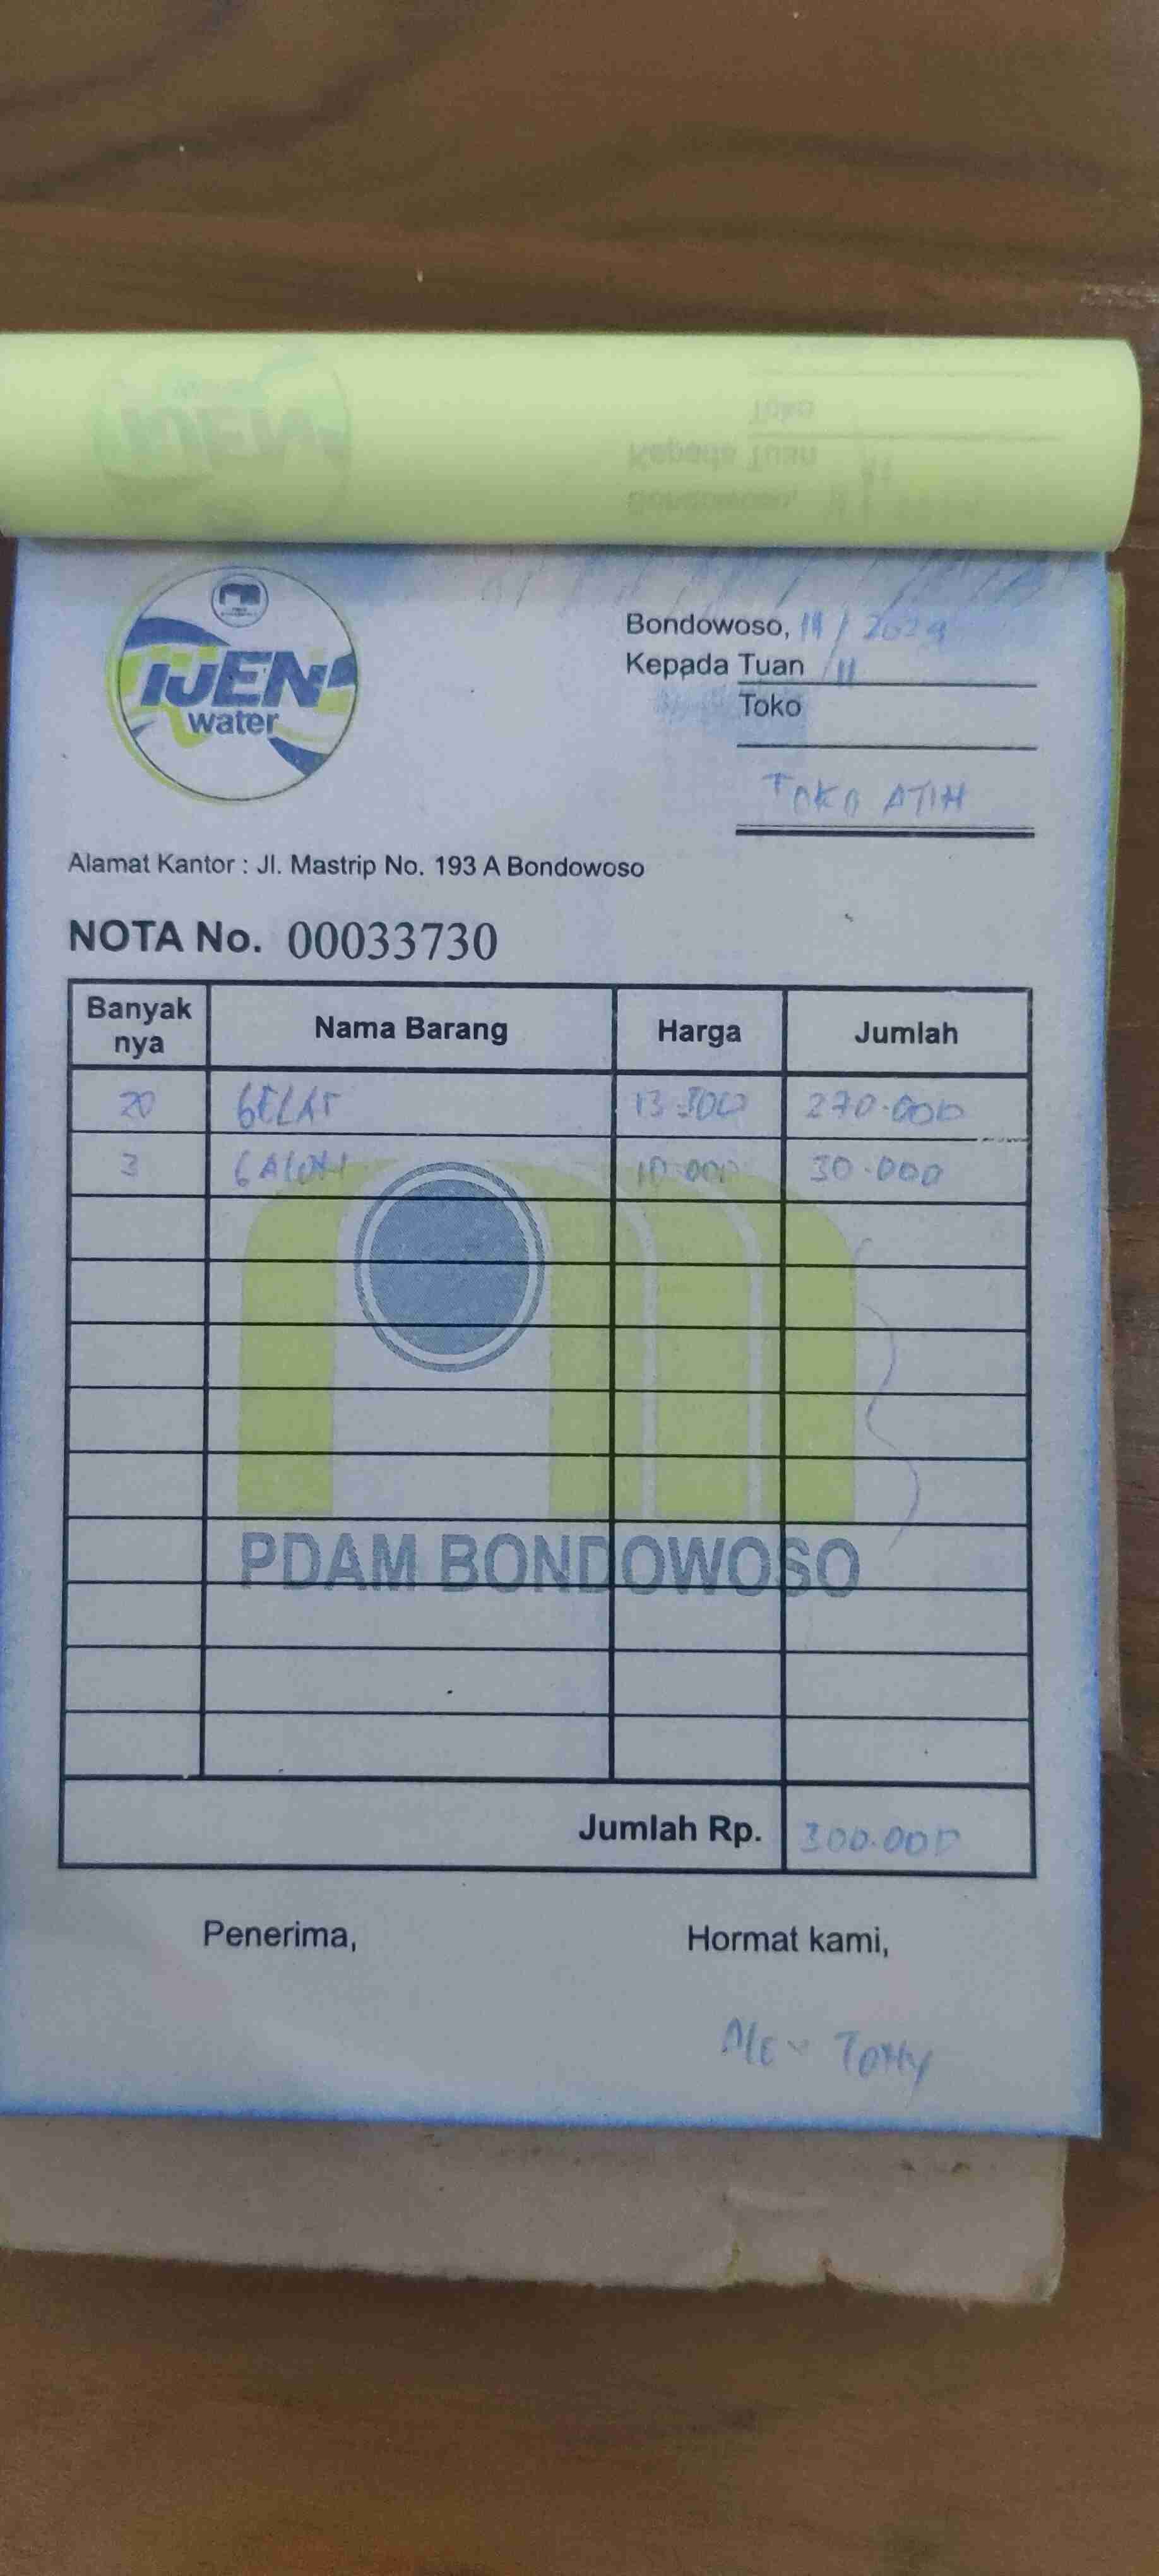 IJEN
water
Bondowoso, 14/11/2024
Kepada Tuan
Toko
TOKO ATIH
Alamat Kantor : Jl. Mastrip No. 193 A Bondowoso
NOTA No. 00033730
Banyak nya Nama Barang Harga Jumlah
20 GELAS 13.500 270.000
3 GALON 10.000 30.000
PDAM BONDOWOSO
Jumlah Rp. 300.000
Penerima, Hormat kami,
TOMY